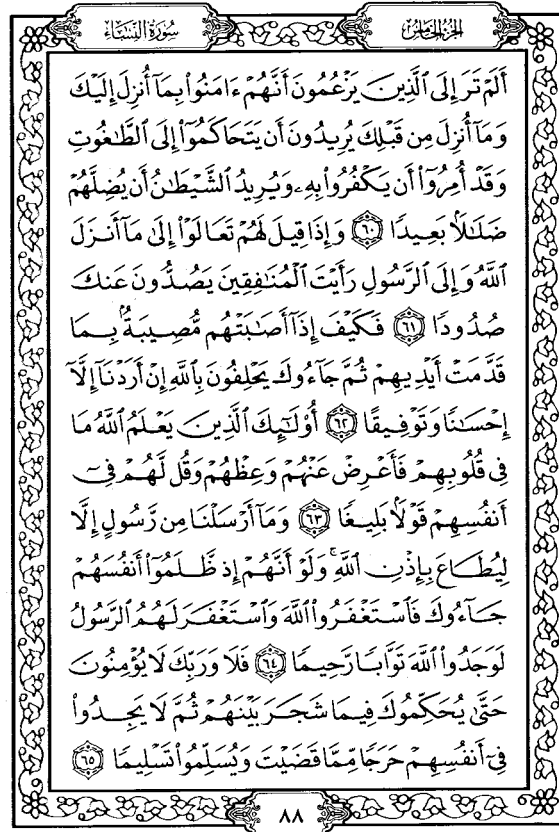 سُورَةُ النِّسَاءِ
الجُزْءُ الخَامِسُ
أَلَمْ تَرَ إِلَى ٱلَّذِينَ يَزْعُمُونَ أَنَّهُمْ ءَامَنُوا۟ بِمَآ أُنزِلَ إِلَيْكَ
وَمَآ أُنزِلَ مِن قَبْلِكَ يُرِيدُونَ أَن يَتَحَاكَمُوٓا۟ إِلَى ٱلطَّٰغُوتِ
وَقَدْ أُمِرُوٓا۟ أَن يَكْفُرُوا۟ بِهِۦ وَيُرِيدُ ٱلشَّيْطَٰنُ أَن يُضِلَّهُمْ
ضَلَٰلًۢا بَعِيدًا ٦٠ وَإِذَا قِيلَ لَهُمْ تَعَالَوْا۟ إِلَىٰ مَآ أَنزَلَ
ٱللَّهُ وَإِلَى ٱلرَّسُولِ رَأَيْتَ ٱلْمُنَٰفِقِينَ يَصُدُّونَ عَنكَ
صُدُودًا ٦١ فَكَيْفَ إِذَآ أَصَٰبَتْهُم مُّصِيبَةٌۢ بِمَا
قَدَّمَتْ أَيْدِيهِمْ ثُمَّ جَآءُوكَ يَحْلِفُونَ بِٱللَّهِ إِنْ أَرَدْنَآ إِلَّآ
إِحْسَٰنًا وَتَوْفِيقًا ٦٢ أُو۟لَٰٓئِكَ ٱلَّذِينَ يَعْلَمُ ٱللَّهُ مَا
فِى قُلُوبِهِمْ فَأَعْرِضْ عَنْهُمْ وَعِظْهُمْ وَقُل لَّهُمْ فِىٓ
أَنفُسِهِمْ قَوْلًۢا بَلِيغًا ٦٣ وَمَآ أَرْسَلْنَا مِن رَّسُولٍ إِلَّا
لِيُطَاعَ بِإِذْنِ ٱللَّهِ ۚ وَلَوْ أَنَّهُمْ إِذ ظَّلَمُوٓا۟ أَنفُسَهُمْ
جَآءُوكَ فَٱسْتَغْفَرُوا۟ ٱللَّهَ وَٱسْتَغْفَرَ لَهُمُ ٱلرَّسُولُ
لَوَجَدُوا۟ ٱللَّهَ تَوَّابًا رَّحِيمًا ٦٤ فَلَا وَرَبِّكَ لَا يُؤْمِنُونَ
حَتَّىٰ يُحَكِّمُوكَ فِيمَا شَجَرَ بَيْنَهُمْ ثُمَّ لَا يَجِدُوا۟
فِىٓ أَنفُسِهِمْ حَرَجًا مِّمَّا قَضَيْتَ وَيُسَلِّمُوا۟ تَسْلِيمًا ٦٥
٨٨